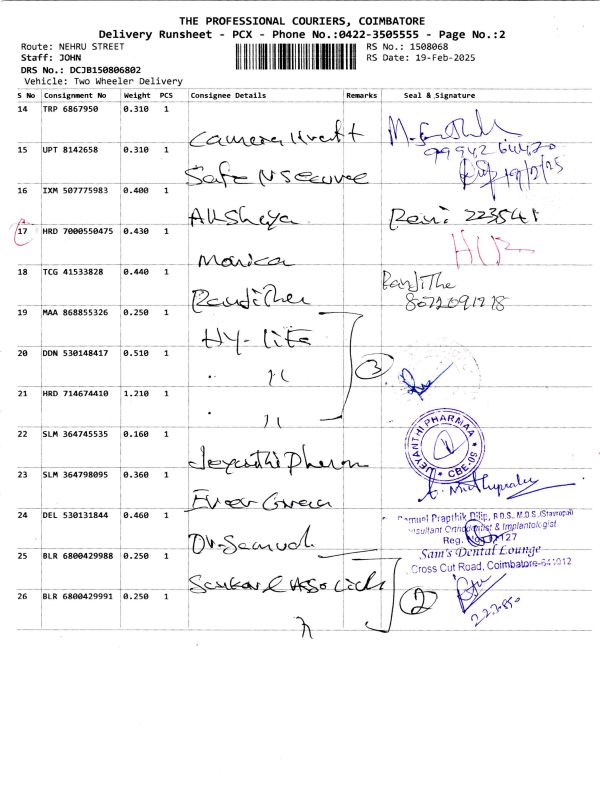 THE PROFESSIONAL COURIERS, COIMBATORE
Delivery Runsheet - PCX - Phone No.:0422-3505555 - Page No.:2
Route: NEHRU STREET
Staff: JOHN
DRS No.: DCJB150806802
Vehicle: Two Wheeler Delivery
RS No.: 1508068
RS Date: 19-Feb-2025
S No Consignment No Weight PCS Consignee Details Remarks Seal & Signature
14 TRP 6867950 0.310 1
Camera
15 UPT 8142658 0.310 1
Safe N Secure
19/2/25
16 IXM 507775983 0.400 1
Akshaya 223541
17 HRD 7000550475 0.430 1
Monica
18 TCG 41533828 0.440 1
Ranjithu RanjiThe
8072091718
19 MAA 868855326 0.250 1
Hy-life
20 DDN 530148417 0.510 1
" 3
21 HRD 714674410 1.210 1
"
22 SLM 364745535 0.160 1
Jeyanthi Pharm
JEYANTHI PHARMAA
CBE-05
23 SLM 364798095 0.360 1
Ever Green
24 DEL 530131844 0.460 1
Dr. Samuel
Samuel Prapthik Dilip, B.D.S., M.D.S.(Stavropal)
Consultant Orthodontist & Implantologist
Reg. No. 127
Sam's Dental Lounge
Cross Cut Road, Coimbatore-641012
25 BLR 6800429988 0.250 1
Sankar & Associate
26 BLR 6800429991 0.250 1
" 2